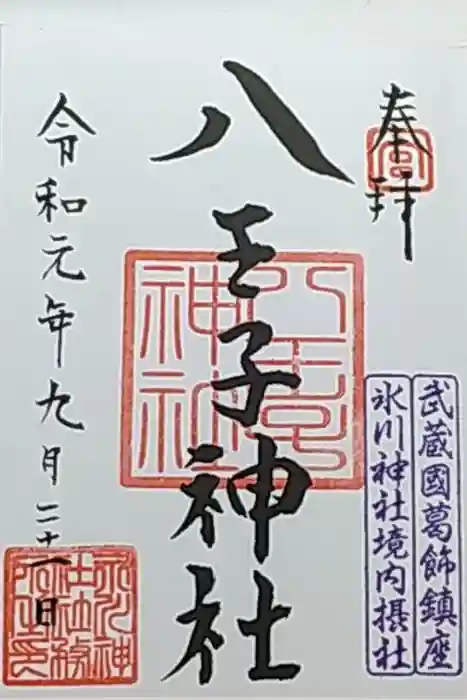 奉拝
武蔵國葛飾鎮座
氷川神社境内摂社
八王子神社
八王子神社
令和元年九月二十一日
氷川神社社務所之印